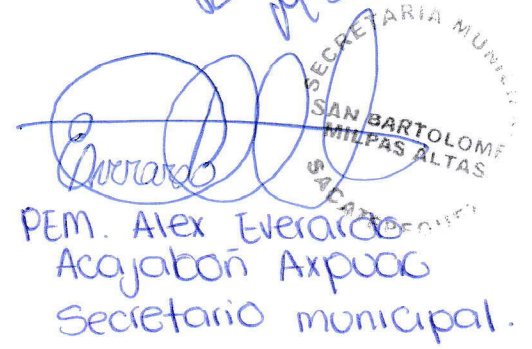 SECRETARIA
SAN BARTOLOME
MILPAS ALTAS
Everardo
PEM. Alex Everardo
Acajabón Axpuac
Secretario municipal.